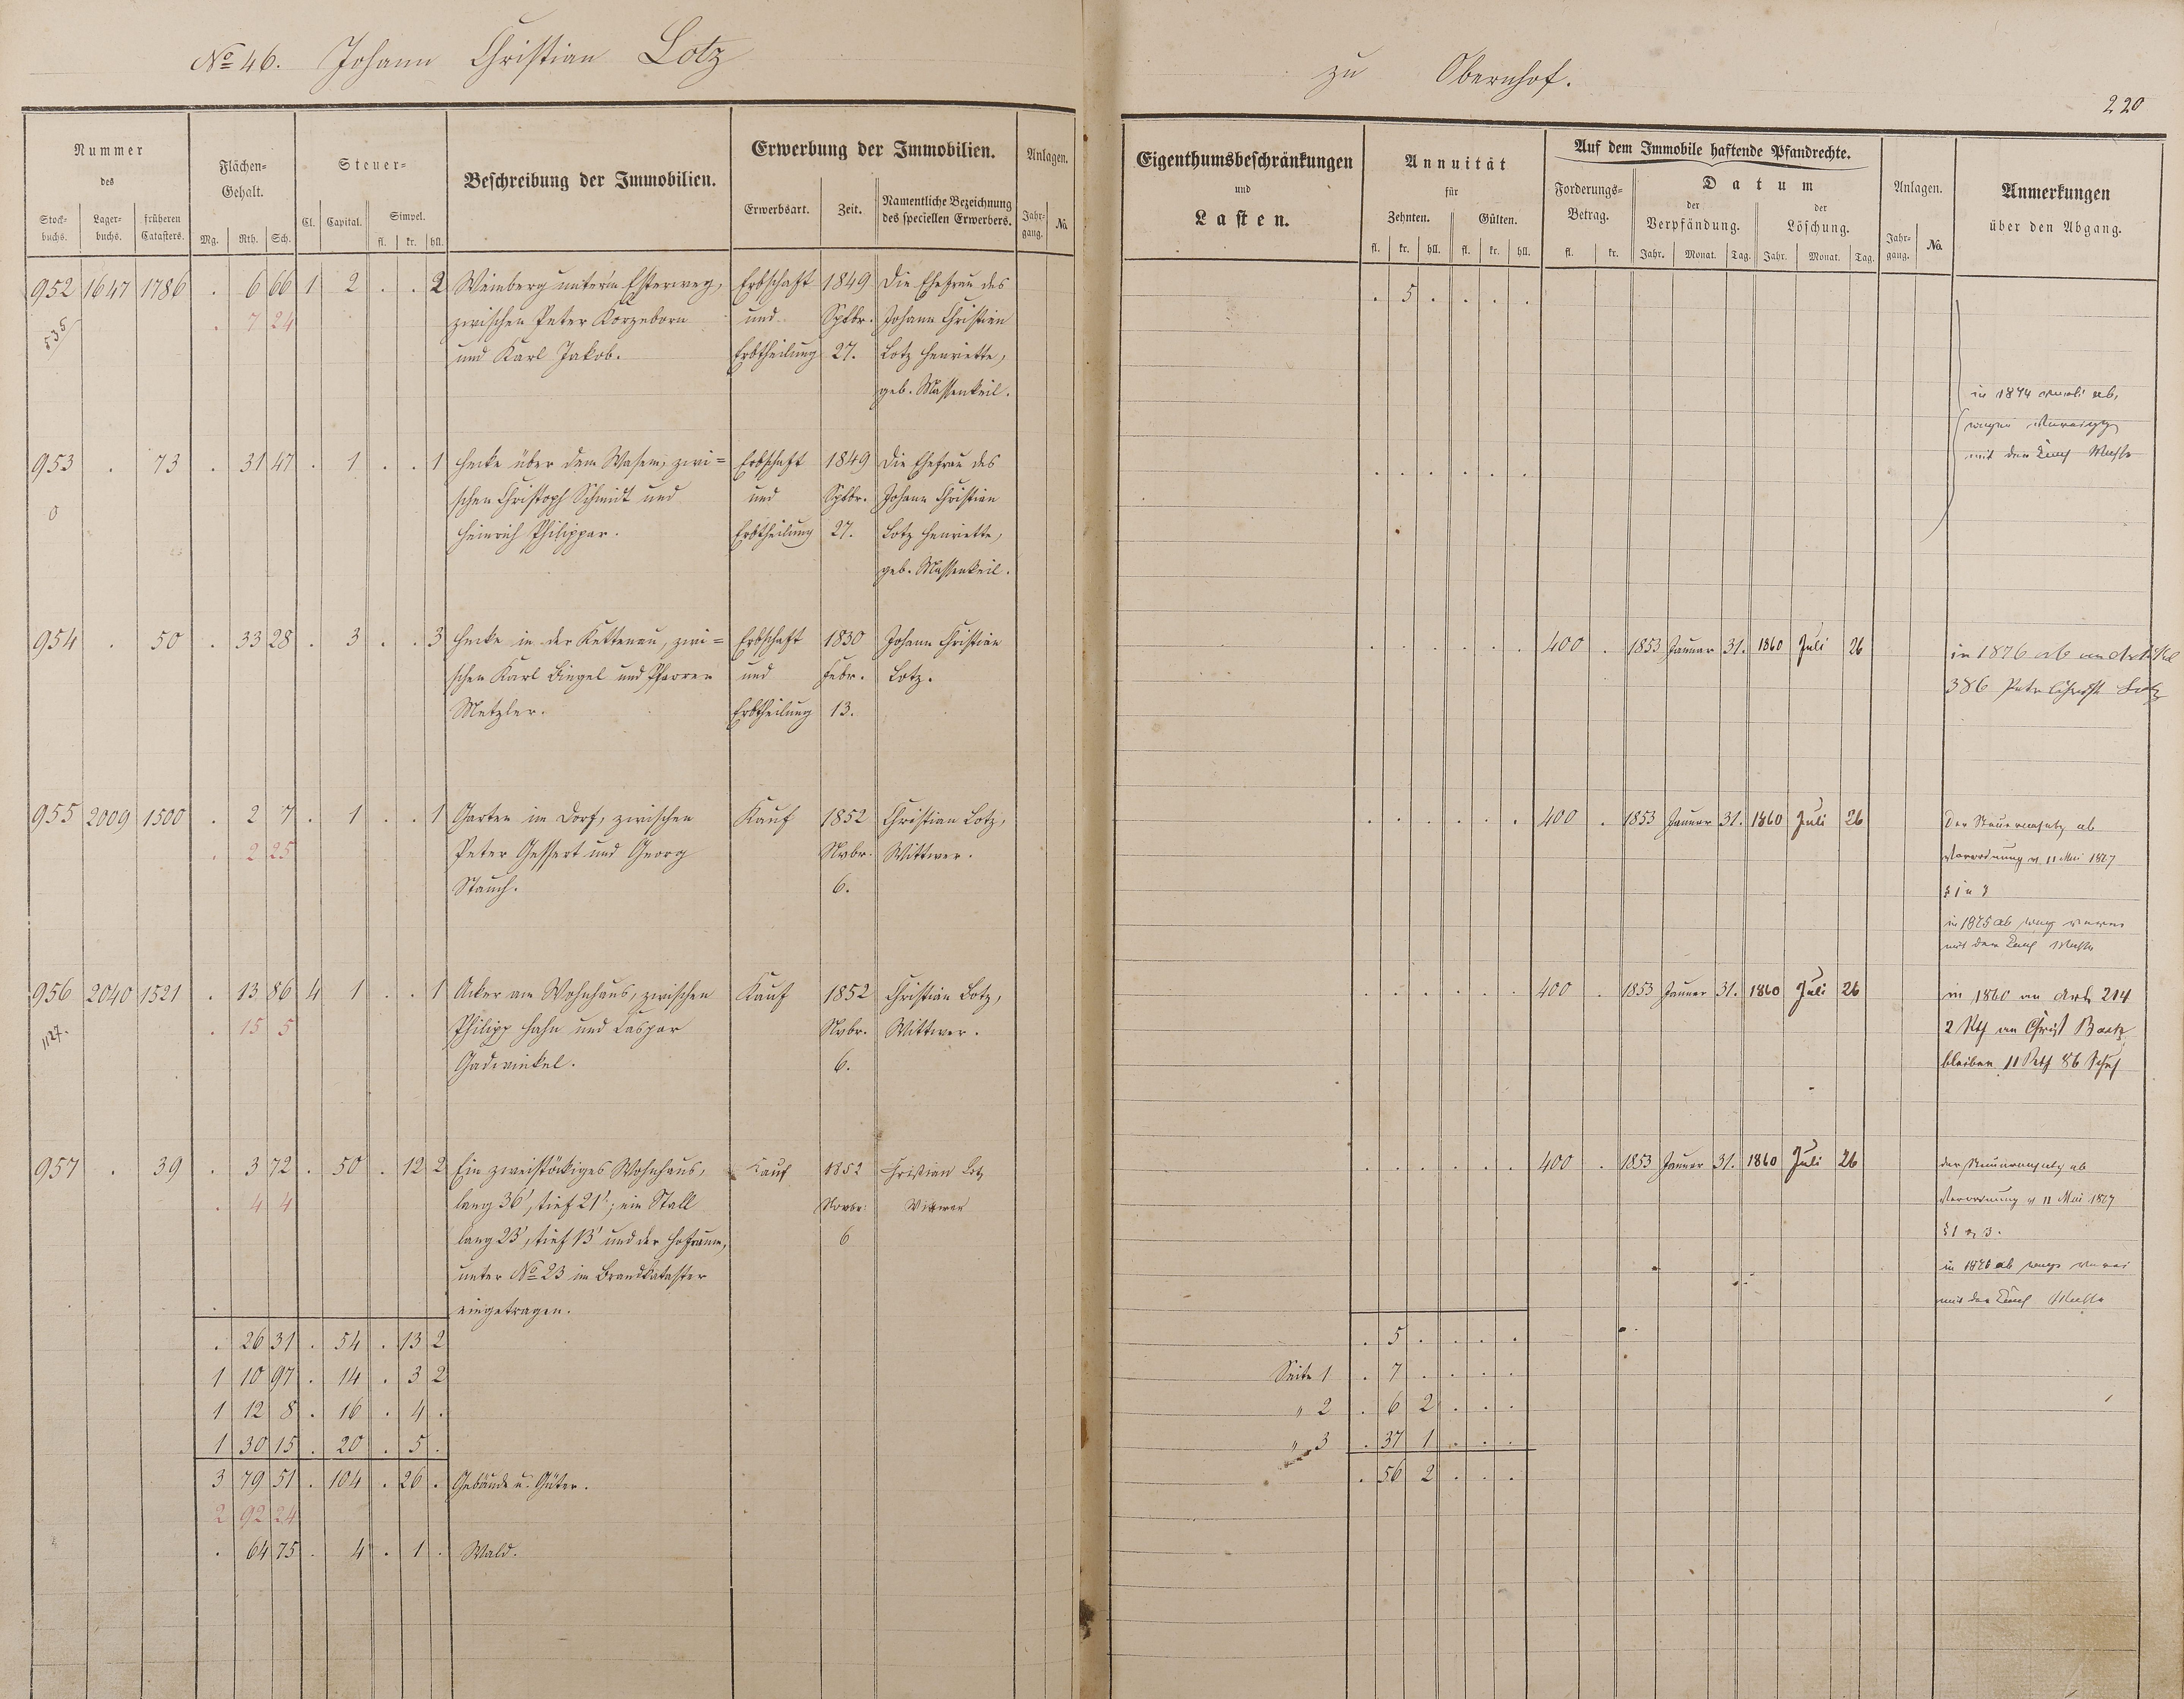 No 46. Johann Christian Lotz
zu Obernhof.
220
Nummer des
Stockbuchs. Lagerbuchs. früheren Catasters.
Flächen-Gehalt.
Mg. Rth. Sch.
Steuer-
Cl. Capital. Simpel.
fl. kr. hll.
Beschreibung der Immobilien.
Erwerbung der Immobilien.
Erwerbsart. Zeit. Namentliche Bezeichnung des speciellen Erwerbers.
Anlagen.
Jahrgang. No.
Eigenthumsbeschränkungen
und
Lasten.
Annuität
für
Zehnten. Gülten.
fl. kr. hll. fl. kr. hll.
Auf dem Immobile haftende Pfandrechte.
Forderungs-Betrag.
fl. kr.
Datum
der Verpfändung. der Löschung.
Jahr. Monat. Tag. Jahr. Monat. Tag.
Anlagen.
Jahrgang. No.
Anmerkungen
über den Abgang.
952 1647 1786 . 6 66 1 2 . . 2 Weinberg unter'm Esterweg, Erbschaft 1849 Die Ehefrau des . 5 . . . .
535 . 7 24 zwischen Peter Korzeborn und Sptbr. Johann Christian
und Karl Jakob. Erbtheilung 27. Lotz Henriette,
geb. Massenkeil.
in 1874 ab,
wegen
mit der
953 . 73 . 31 47 . 1 . . 1 Hecke über dem Wasem, zwi= Erbschaft 1849 Die Ehefrau des . . . . . .
0 schen Christoph Schmidt und und Sptbr. Johann Christian
Heinrich Philippar. Erbtheilung 27. Lotz Henriette,
geb. Massenkeil.
954 . 50 . 33 28 . 3 . . 3 Hecke in der Kettenau, zwi= Erbschaft 1830 Johann Christian . . . . . . 400 . 1853 Januar 31. 1860 Juli 26 in 1876 ab an Artikel
schen Karl Bingel und Pfarrer und Febr. Lotz. 386 Lotz
Metzler. Erbtheilung 13.
955 2009 1500 . 2 7 . 1 . . 1 Garten im Dorf, zwischen Kauf 1852 Christian Lotz, . . . . . . 400 . 1853 Januar 31. 1860 Juli 26 der Steueransatz ab
. 2 25 Peter Gessert und Georg Nvbr. Wittwer. Verordnung v. 11 Mai 1867
Stauch. 6. § 1 u 3
in 1875 ab wegen
mit der
956 2040 1521 . 13 86 4 1 . . 1 Acker am Wohnhaus, zwischen Kauf 1852 Christian Lotz, . . . . . . 400 . 1853 Januar 31. 1860 Juli 26 in 1860 an Art. 214
1127. . 15 5 Philipp Hahn und Caspar Nvbr. Wittwer. 2 Rth an Christ
Gadewinkel. 6. bleiben 11 Rth 86 Sch
957 . 39 . 3 72 . 50 . 12 2 Ein zweistöckiges Wohnhaus, Kauf 1852 Christian Lotz . . . . . . 400 . 1853 Januar 31. 1860 Juli 26 der Steueransatz ab
. 4 4 lang 36', tief 21'; ein Stall Novbr. Wittwer Verordnung v 11 Mai 1867
lang 23', tief 13' und der Hofraum, 6 § 1 u 3.
unter No 23 im Brandkataster in 1876 ab wegen
eingetragen. mit der
. 26 31 . 54 . 13 2 . 5 . . . .
1 10 97 . 14 . 3 2 Seite 1 . 7 . . . .
1 12 8 . 16 . 4 . " 2 . 6 2 . . .
1 30 15 . 20 . 5 . " 3 . 37 1 . . .
3 79 51 . 104 . 26 . Gebäude u. Güter. . 56 2 . . .
2 92 24
. 64 75 . 4 . 1 . Wald.